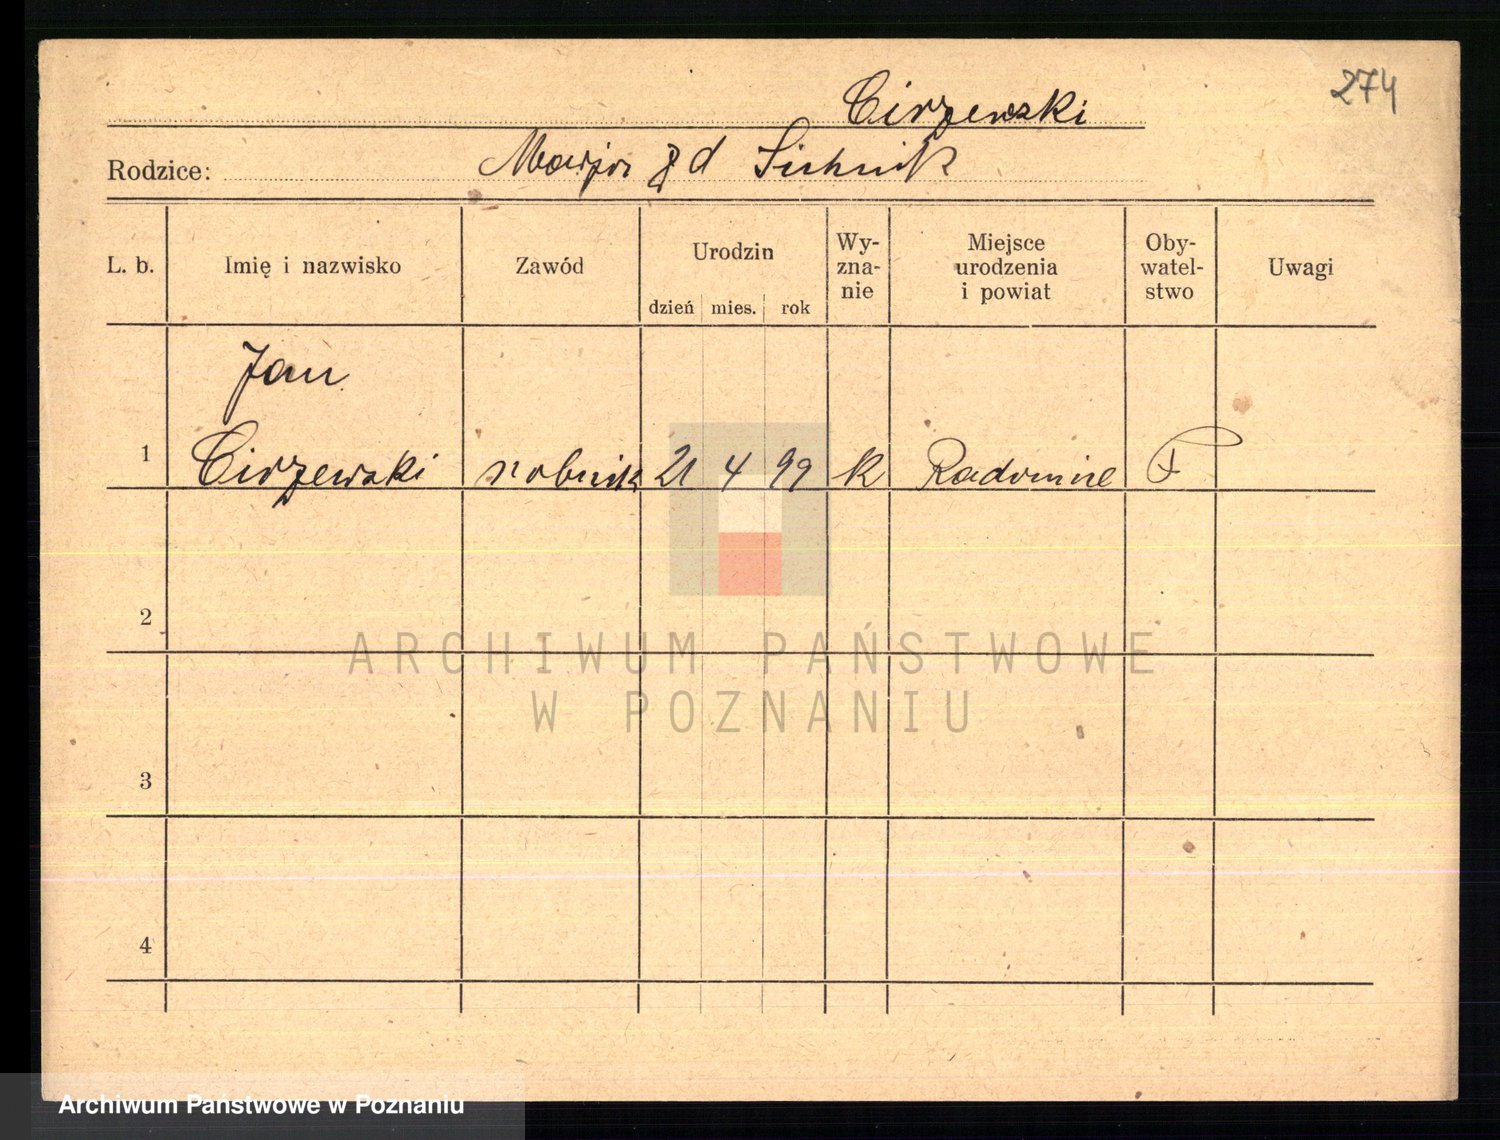 274
Cirzewski
Rodzice: Marja z d
L. b.
Imię i nazwisko
Zawód
Urodzin
dzień mies. rok
Wy-
zna-
nie
Miejsce
urodzenia
i powiat
Oby-
watel-
stwo
Uwagi
Jan
1 Cirzewski robnik 21 4 99 k P
2
3
4
ARCHIWUM PAŃSTWOWE
W POZNANIU
Archiwum Państwowe w Poznaniu